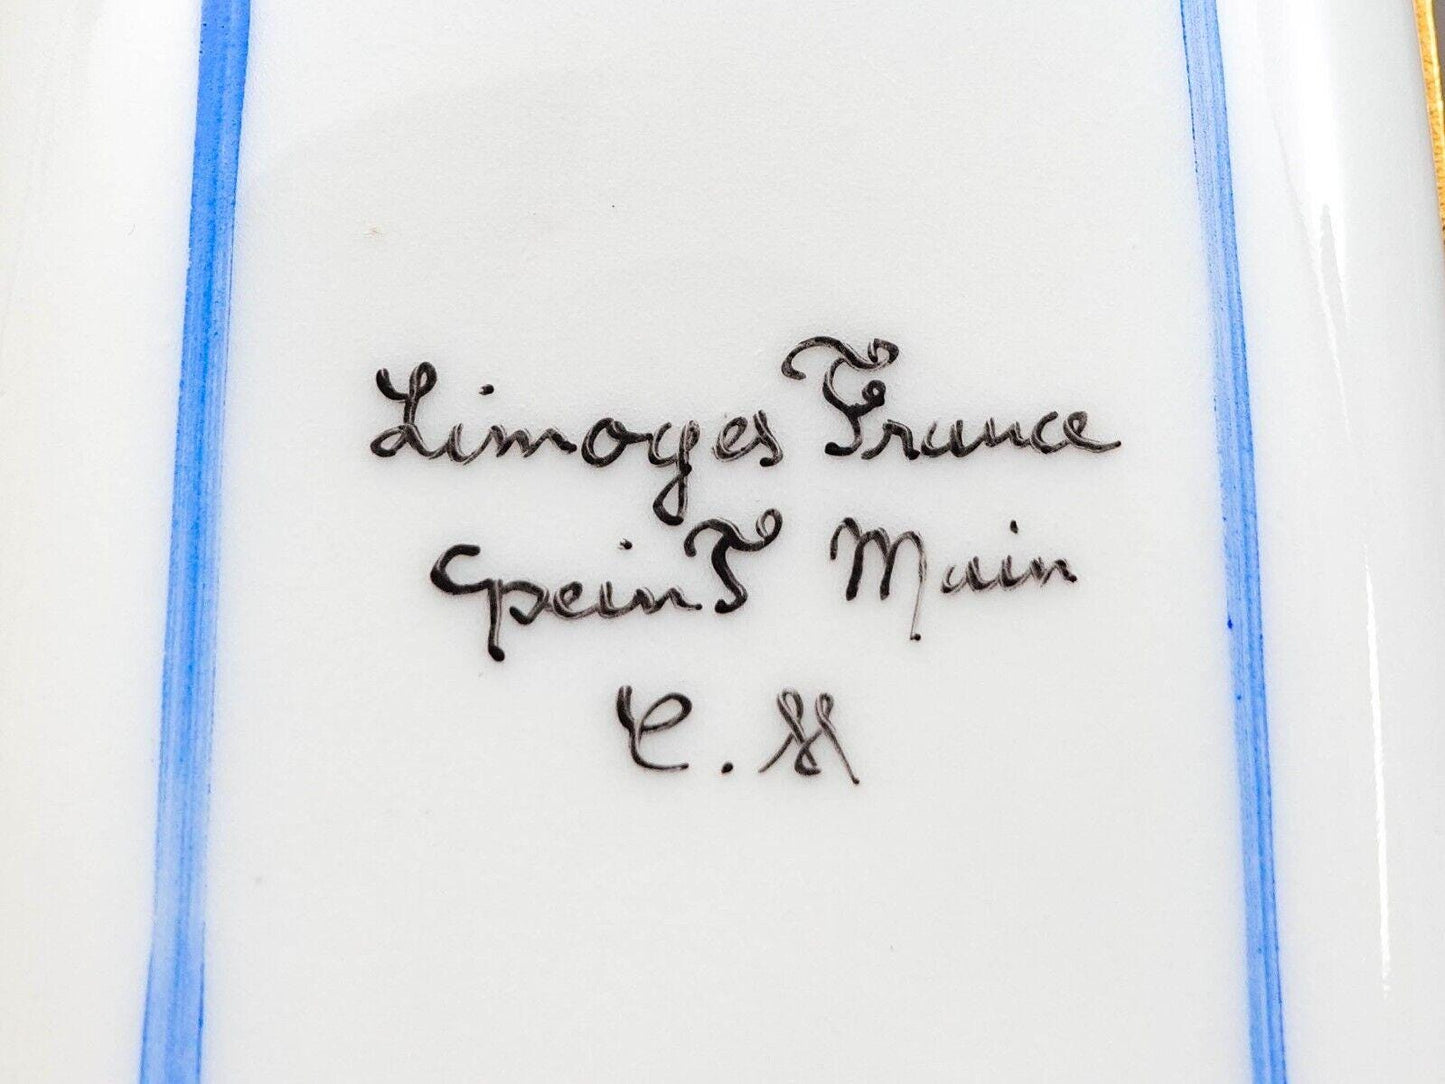 Limoges France
peinT Main
C.M